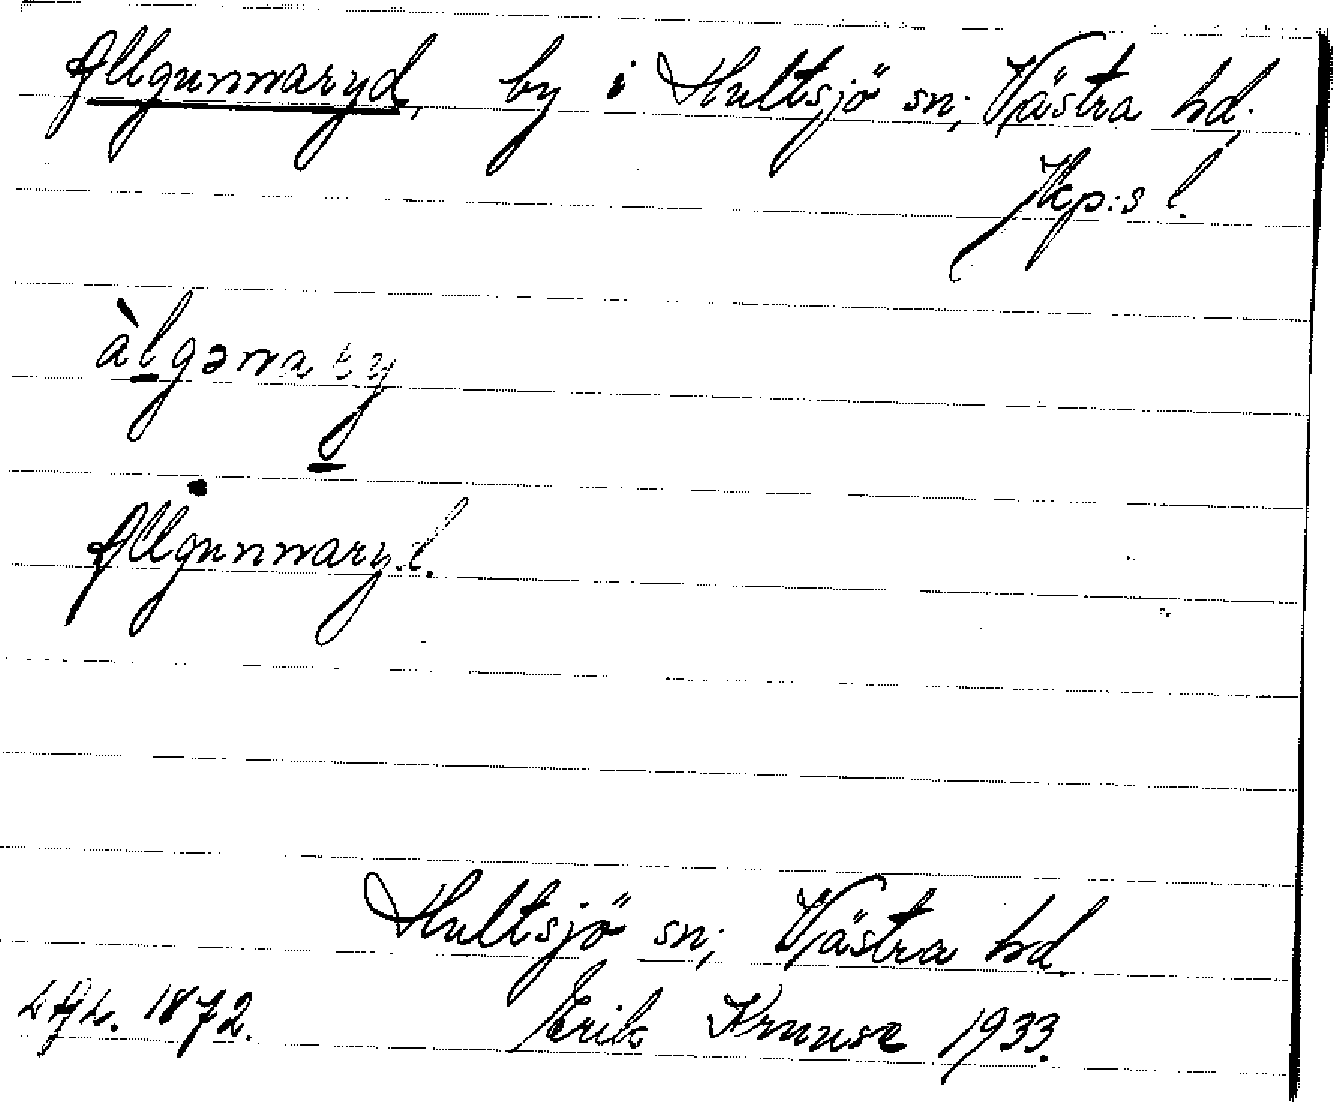 Allgunnaryd, by i Hultsjö sn; Västra hd,
Jkp:s l.
àlgənary
Allgunnaryd.
Hultsjö sn; Västra hd.
1872. Erik Kruuse 1933.